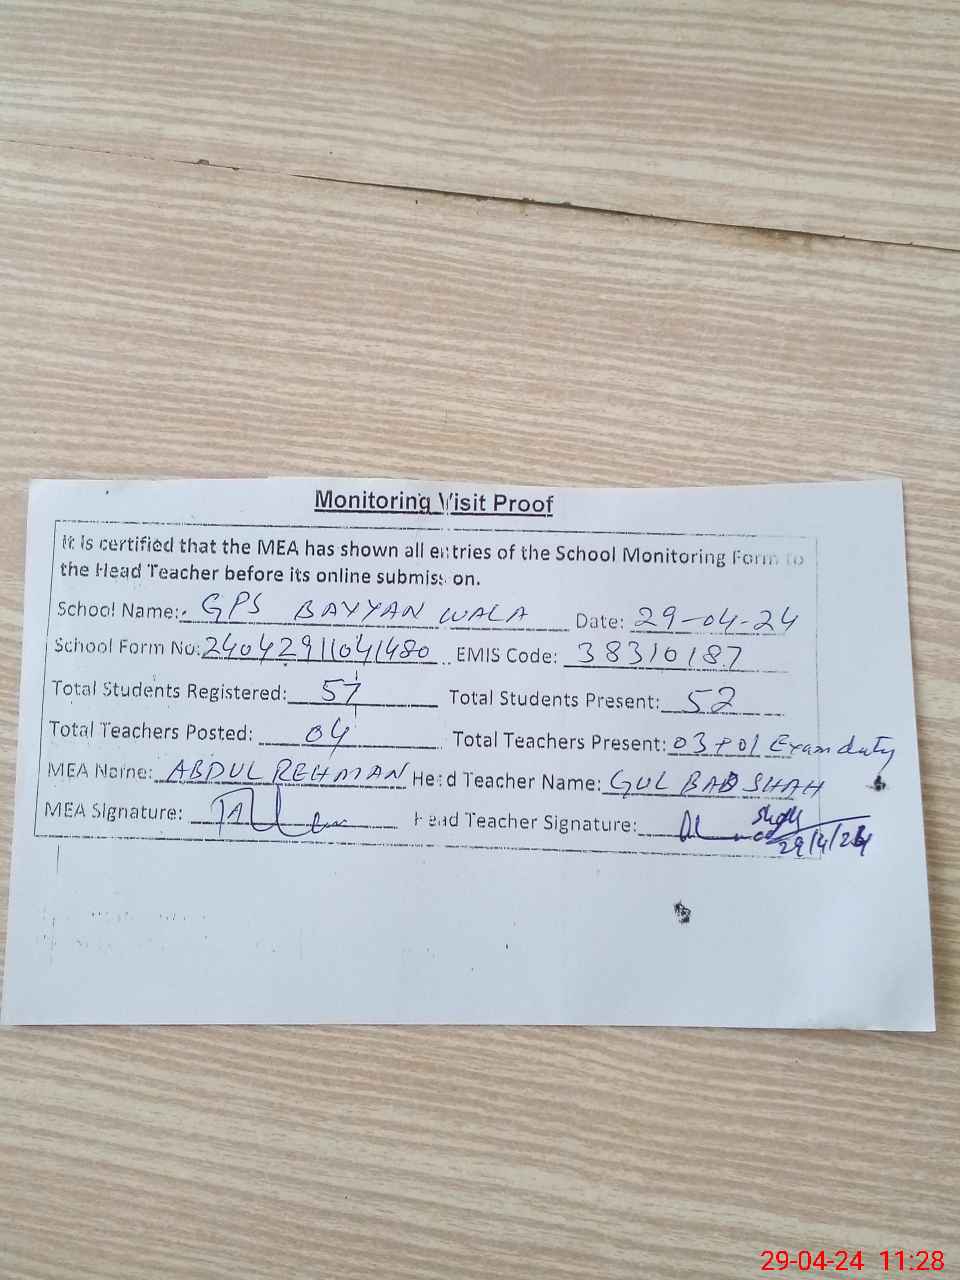 Monitoring Visit Proof
It is certified that the MEA has shown all entries of the School Monitoring Form to
the Head Teacher before its online submission.
School Name: GPS BAYYAN WALA Date: 29-04-24
School Form No: 24042911041480 EMIS Code: 38310187
Total Students Registered: 57 Total Students Present: 52
Total Teachers Posted: 04 Total Teachers Present: 03+01 Exam duty
MEA Name: ABDUL REHMAN Head Teacher Name: GUL BADSHAH
MEA Signature: Head Teacher Signature:
29/4/24
29-04-24 11:28